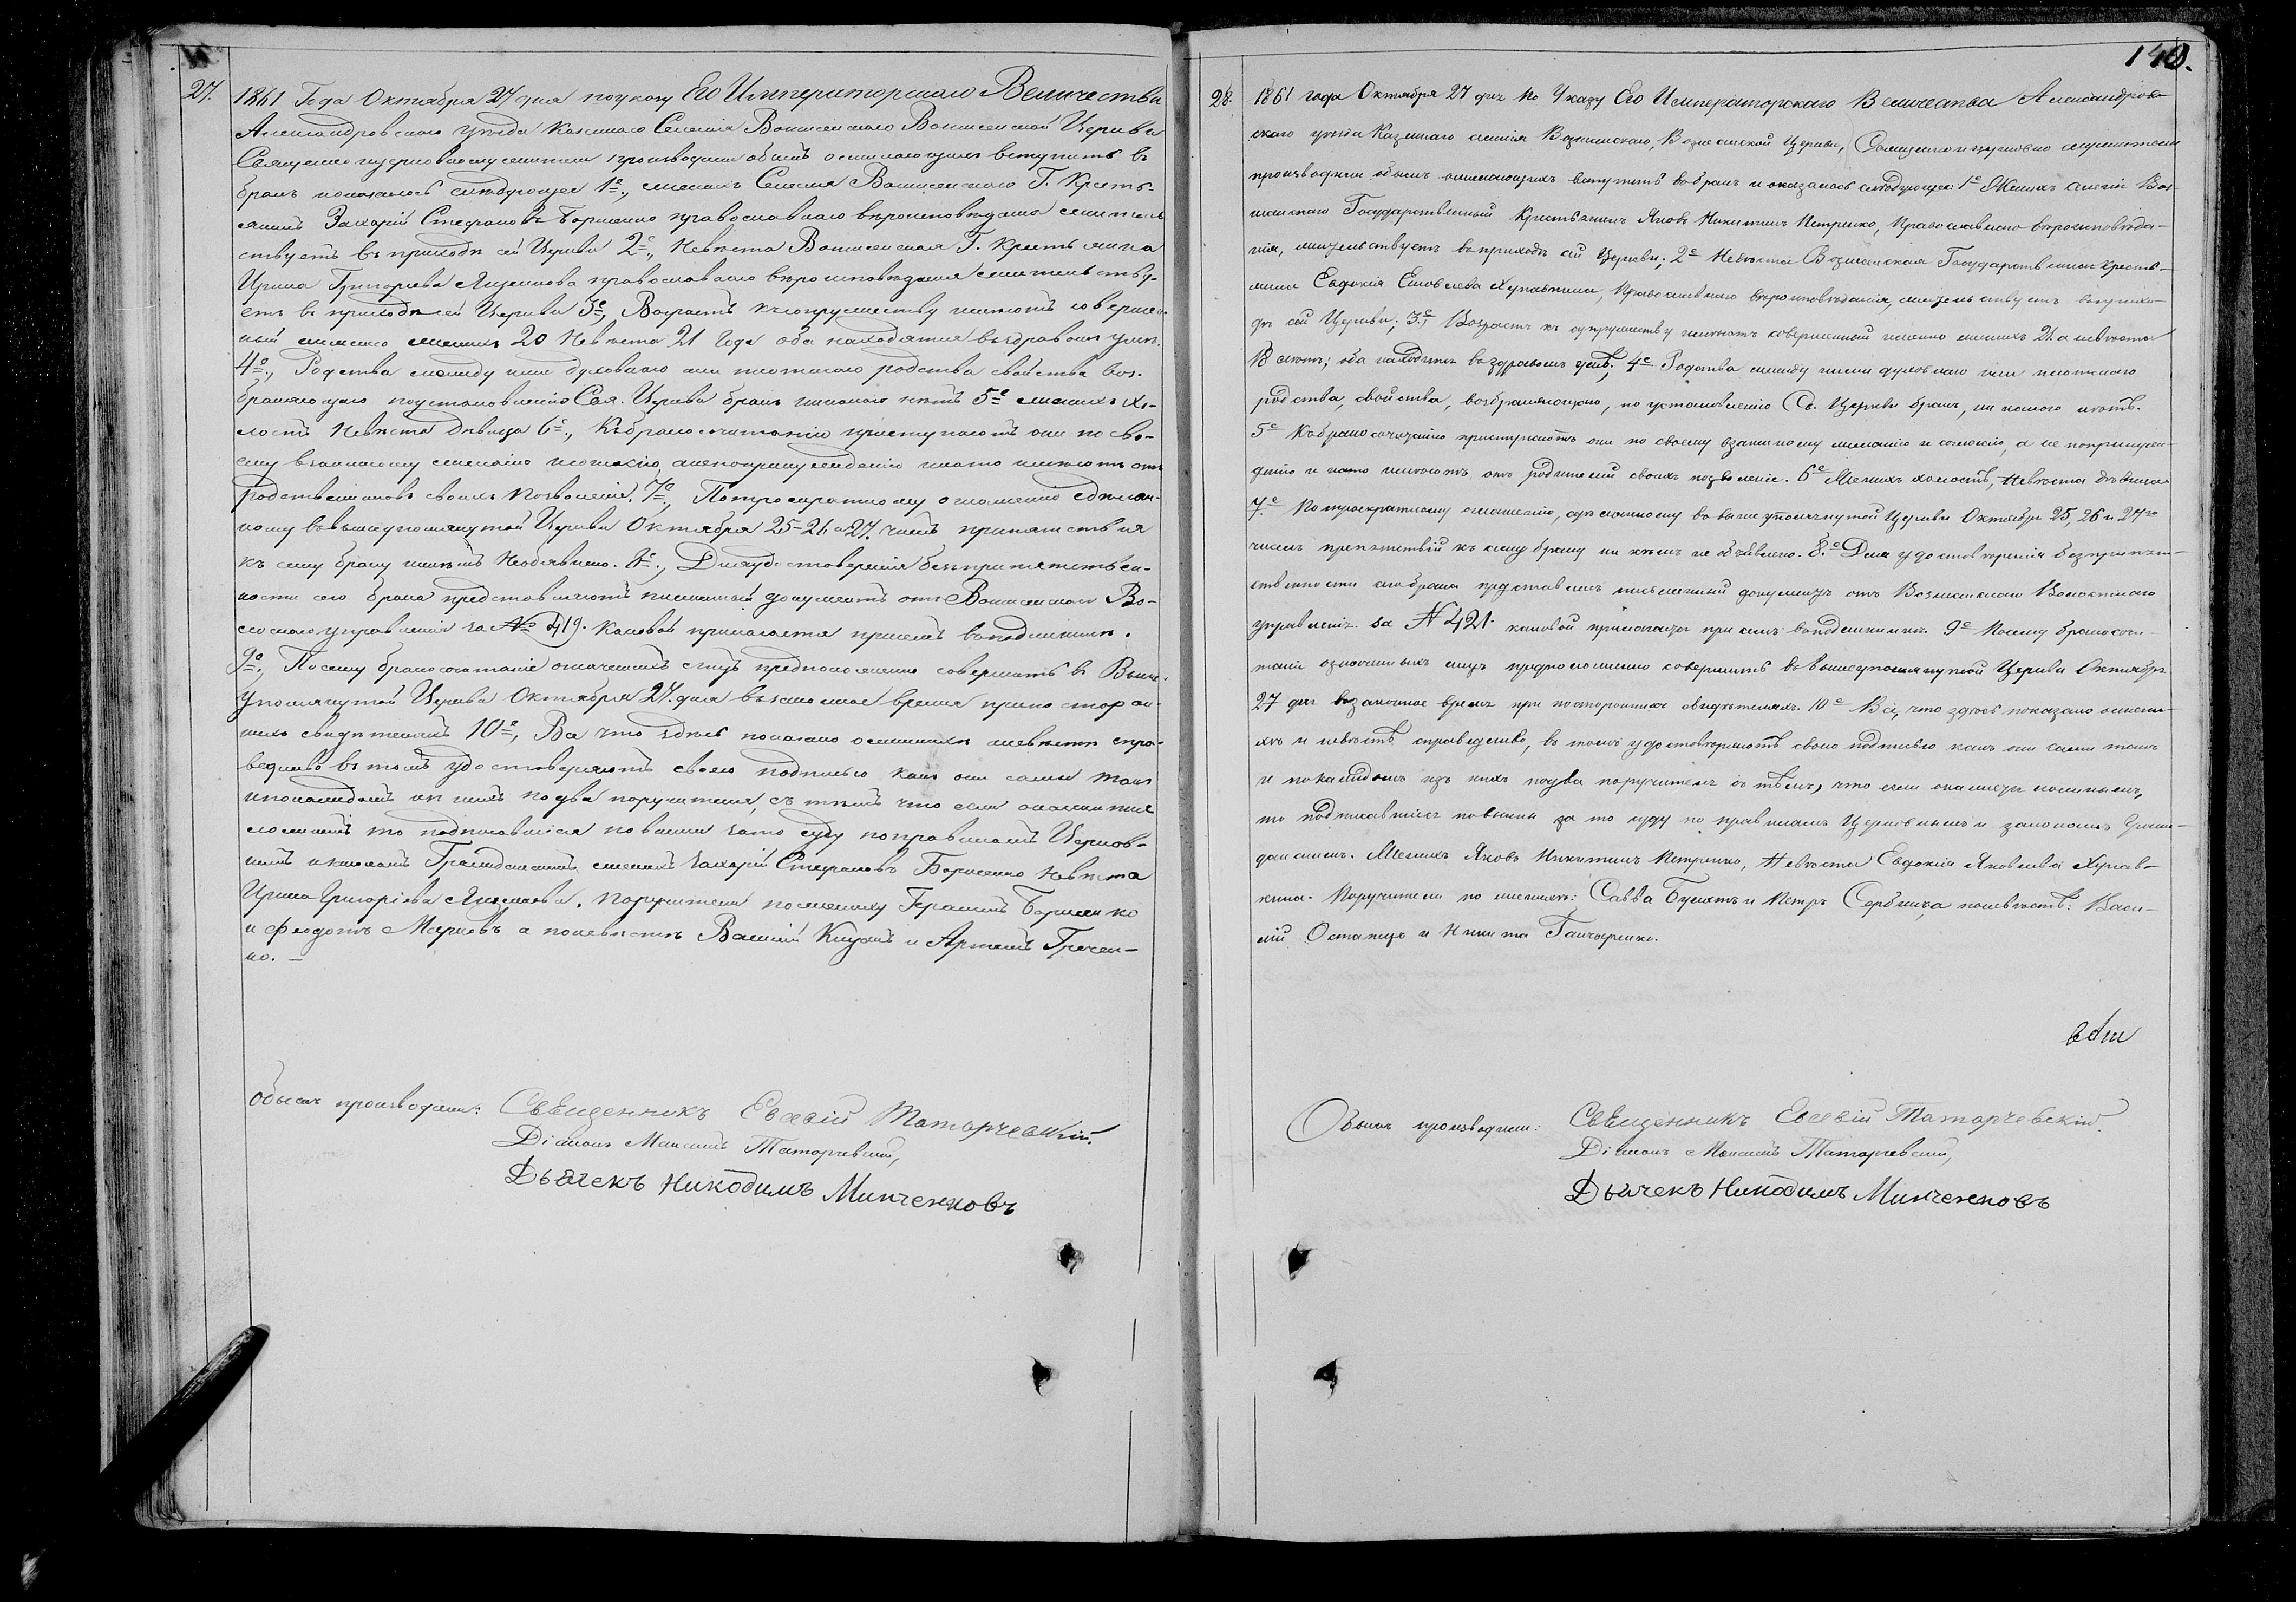 27.
1861 Года Октября 27 дня по указу Его Императорскаго Величества
Александровскаго уезда Казеннаго Селенія Вознесенскаго Вознесенской Церкви
Священно церковнослужители производили обыскъ о желающихъ вступить въ
бракъ и оказалось слѣдующее 1е., женихъ Селенія Вознесенскаго Г. Кресть-
янинъ Захарій Стефановъ Борисенко православнаго вѣроисповѣданія жительс
ствуетъ въ приходѣ сей Церкви 2е., Невѣста Вознесенская Г. Крестьянка
Ирина Григорьева православнаго вѣроисповѣданія жительству-
етъ въ приходѣ сей Церкви 3е., Возрастъ къ супружеству имѣютъ совершен-
ный именно женихъ 20 Невѣста 21 Года оба находятся въ здравомъ умѣ.
4е., Родства между ими духовнаго или плотскаго родства свойства воз-
браняющаго по установленію Свя. Церкви бракъ никакого нѣтъ 5е женихъ хо-
лостъ Невѣста дѣвица 6е., Къ бракосочетанію приступаютъ они по сво-
ему взаимному желанію и согласію, а не по принужденію и на то имѣютъ отъ
родственниковъ своихъ позволеніе. 7е., По троекратному оглашенію сдѣлан-
ному въ вышеупомянутой Церкви Октября 25-26 и 27. числъ препятствія
къ сему браку никемъ необявлено. 8е., Для удостоверенія безпрепятствен-
ности сего брака представляютъ письменный документъ отъ Вознесенскаго Во-
лостнаго управленія за № 419. каковой прилагается при семъ въ подлиннике.
9е., Посему бракосочетаніе означенныхъ лицъ предположено совершить въ Выше-
упомянутой Церкви Октября 27. дня въ законное время при посторон-
нихъ свидѣтеляхъ 10е., Все что здесь показано о женихѣ и невѣстѣ спра-
ведливо въ томъ удостоверяютъ своею подписью какъ они сами такъ
и по каждомъ изъ нихъ по два поручителя, съ тѣмъ что если окажется
ложнымъ то подписавшіеся повинны за то суду по правиламъ Церков-
нымъ и законамъ Гражданскимъ женихъ Захарій Стефановъ Борисенко Невѣста
Ирина Григоріева. Поручители по жениху Герасимъ Борисенко
и Феодотъ а по невѣстѣ Василій и Артемъ Гречен-
ко. —
Обыскъ производили: Священникъ Евсевій Татарчевскій.
Діаконъ Максимъ Татарчевскій,
Дьячекъ Никодимъ Минченковъ
140.
28.
1861 года Октября 27 дня По Указу Его Императорскаго Величества Александров-
скаго уѣзда Казеннаго селенія Вознесенскаго, Вознесенской Церкви, Священно и церковно служители
производили обыскъ о желающихъ вступить въ бракъ и оказалось слѣдующее: 1е Женихъ селенія Воз-
несенскаго Государственный Крестьянинъ Яковъ Никитинъ Петренко, Православнаго вѣроисповѣда-
нія, жительствуетъ въ приходѣ сей Церкви; 2е Невѣста Вознесенская Государственная Кресть-
янка Евдокія Яковлева, Православнаго вѣроисповѣданія, жительствуетъ въ прихо-
дѣ сей Церкви; 3е., Возрастъ къ супружеству имѣютъ совершенный именно женихъ 21. а невѣста
18 лѣтъ; оба находятся въ здравомъ умѣ; 4е Родства между ними духовнаго или плотскаго
родства, свойства, возбраняющаго, по установленію Св. Церкви бракъ, ни какого нѣтъ.
5е Къ бракосочетанію приступаютъ они по своему взаимному желанію и согласію, а не по принуж-
денію и на то имѣютъ отъ родителей своихъ позволеніе. 6е Женихъ холостъ, Невѣста дѣвица
7е По троекратному оглашенію, сдѣланному въ вышеупомянутой Церкви Октября 25, 26 и 27го
числъ препятствій къ сему браку ни кѣмъ не объявлено. 8.е Для удостовѣренія безпрепят-
ственности сего брака представленъ письменный документъ отъ Вознесенскаго Волостнаго
управленія за № 421. каковой прилагается при семъ въ подлинникѣ. 9е Посему бракосоче-
таніе означенныхъ лицъ предположено совершить въ вышеупомянутой Церкви Октября
27 дня въ законное время при постороннихъ свидѣтеляхъ. 10е Все, что здѣсь показано о жени-
хѣ и невѣстѣ справедливо, въ томъ удостовѣряютъ своею подписью какъ они сами такъ
и по каждомъ изъ нихъ по два поручителя съ тѣмъ, что если окажется ложнымъ,
то подписавшіеся повинны за то суду по правиламъ Церковнымъ и законамъ Граж-
данскимъ. Женихъ Яковъ Никитинъ Петренко, Невѣста Евдокія Яковлева
Поручители по женихѣ: Савва и Петръ по невѣстѣ: Васи-
лій Остапецъ и Никита Ганчаренко.
Обыскъ производили: Священникъ Евсевій Татарчевскій.
Діаконъ Максимъ Татарчевскій,
Дьячекъ Никодимъ Минченковъ